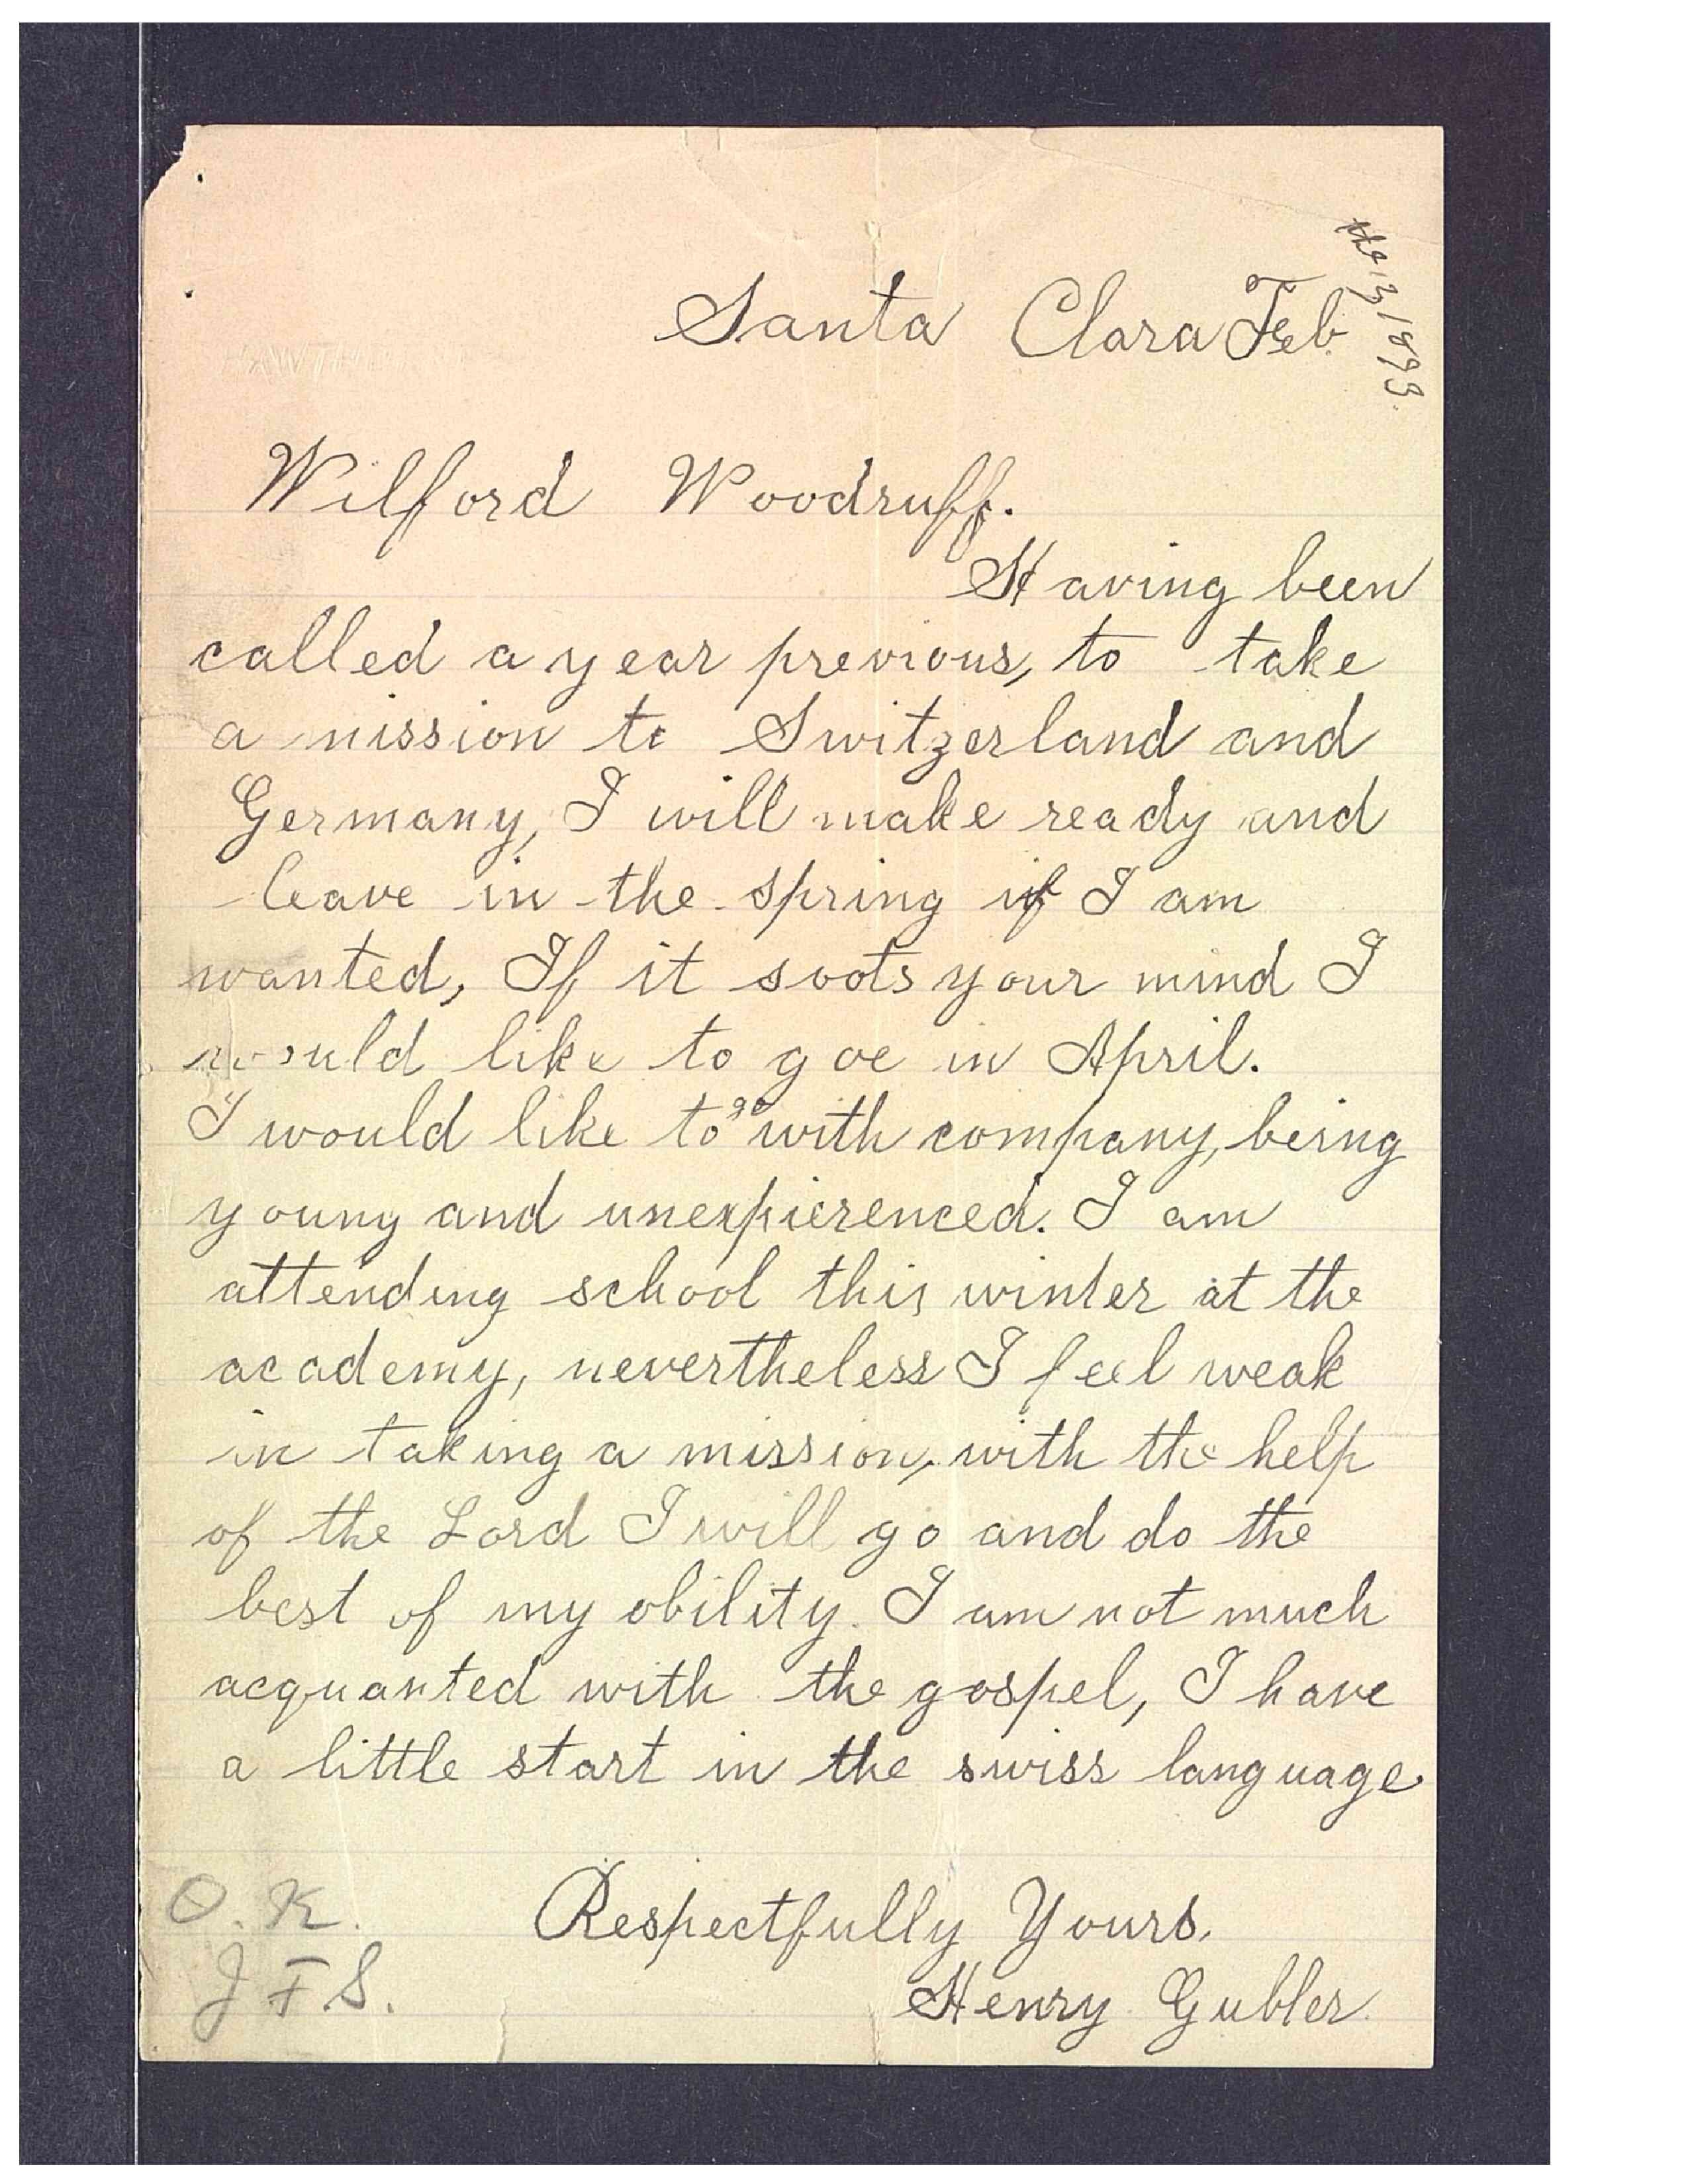 Santa Clara Feb.
the 13, 1893.
Wilford Woodruff.
Having been
called a year previous, to take
a mission to Switzerland and
Germany, I will make ready and
leave in the spring if I am
wanted, If it soots your mind I
would like to goe in April.
I would like to go with company, being
young and unexpierenced. I am
attending school this winter at the
academy, nevertheless I feel weak
in taking a mission, with the help
of the Lord I will go and do the
best of my obility. I am not much
acquanted with the gospel, I have
a little start in the swiss language.
Respectfully Yours.
Henry Gubler.
O.K.
J F S.